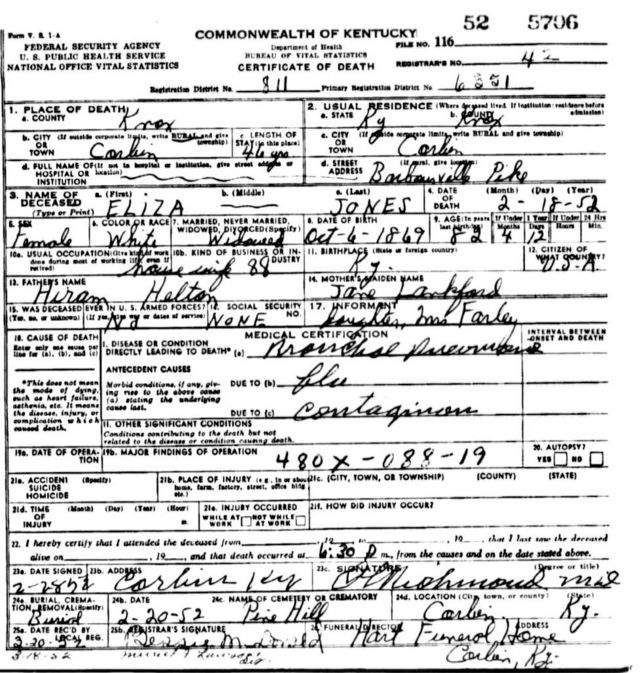 52 5706
Form V. S. 1-A
COMMONWEALTH OF KENTUCKY
FEDERAL SECURITY AGENCY
U. S. PUBLIC HEALTH SERVICE
NATIONAL OFFICE VITAL STATISTICS
Department of Health
BUREAU OF VITAL STATISTICS
CERTIFICATE OF DEATH
FILE NO. 116
REGISTRAR'S NO. 42
Registration District No. 811 Primary Registration District No. 6351
1. PLACE OF DEATH
a. COUNTY Knox
2. USUAL RESIDENCE (Where deceased lived. If institution: residence before admission)
a. STATE Ky b. COUNTY Knox
b. CITY (If outside corporate limits, write RURAL and give township) OR TOWN Corbin
c. LENGTH OF STAY (in this place) 46 yrs
c. CITY (If outside corporate limits, write RURAL and give township) OR TOWN Corbin
d. FULL NAME OF (If not in hospital or institution, give street address or location) HOSPITAL OR INSTITUTION
d. STREET ADDRESS (If rural, give location) Barbourville Pike
3. NAME OF DECEASED (Type or Print)
a. (First) ELIZA b. (Middle) c. (Last) JONES
4. DATE OF DEATH (Month) (Day) (Year) 2-18-52
5. SEX Female
6. COLOR OR RACE White
7. MARRIED, NEVER MARRIED, WIDOWED, DIVORCED (Specify) Widowed
8. DATE OF BIRTH Oct-6-1869
9. AGE (In years last birthday) 82 If Under 1 Year 4 12 If Under 24 Hrs Hours Min.
10a. USUAL OCCUPATION (Give kind of work done during most of working life, even if retired) house wife 88
10b. KIND OF BUSINESS OR INDUSTRY
11. BIRTHPLACE (State or foreign country) Ky.
12. CITIZEN OF WHAT COUNTRY? U.S.A.
13. FATHER'S NAME Hiram Helton
14. MOTHER'S MAIDEN NAME Jane Lankford
15. WAS DECEASED EVER IN U. S. ARMED FORCES? (Yes, no, or unknown) (If yes, give war or dates of service) No
16. SOCIAL SECURITY NO. NONE
17. INFORMANT Daughter, Mrs Farley
18. CAUSE OF DEATH
Enter only one cause per line for (a), (b), and (c)
MEDICAL CERTIFICATION
INTERVAL BETWEEN ONSET AND DEATH
I. DISEASE OR CONDITION DIRECTLY LEADING TO DEATH* (a) Bronchial Pneumonia
*This does not mean the mode of dying, such as heart failure, asthenia, etc. It means the disease, injury, or complication which caused death.
ANTECEDENT CAUSES
Morbid conditions, if any, giving rise to the above cause (a) stating the underlying cause last.
DUE TO (b) flu
DUE TO (c) Contaginon
II. OTHER SIGNIFICANT CONDITIONS
Conditions contributing to the death but not related to the disease or condition causing death.
19a. DATE OF OPERATION
19b. MAJOR FINDINGS OF OPERATION
480X-088-19
20. AUTOPSY? YES NO
21a. ACCIDENT SUICIDE HOMICIDE (Specify)
21b. PLACE OF INJURY (e.g., in or about home, farm, factory, street, office bldg., etc.)
21c. (CITY, TOWN, OR TOWNSHIP) (COUNTY) (STATE)
21d. TIME OF INJURY (Month) (Day) (Year) (Hour) m.
21e. INJURY OCCURRED WHILE AT WORK NOT WHILE AT WORK
21f. HOW DID INJURY OCCUR?
22. I hereby certify that I attended the deceased from , 19 to , 19 , that I last saw the deceased
alive on , 19 and that death occurred at 6:30 P m., from the causes and on the date stated above.
23a. DATE SIGNED
23b. ADDRESS Corbin Ky
23c. SIGNATURE (Degree or title) Richmond MD
24a. BURIAL, CREMATION, REMOVAL (Specify) Burial
24b. DATE 2-20-52
24c. NAME OF CEMETERY OR CREMATORY Pine Hill
24d. LOCATION (City, town, or county) (State) Corbin Ky.
25a. DATE REC'D BY LOCAL REG.
25b. REGISTRAR'S SIGNATURE
26. FUNERAL DIRECTOR ADDRESS Hart Funeral Home
Corbin, Ky.